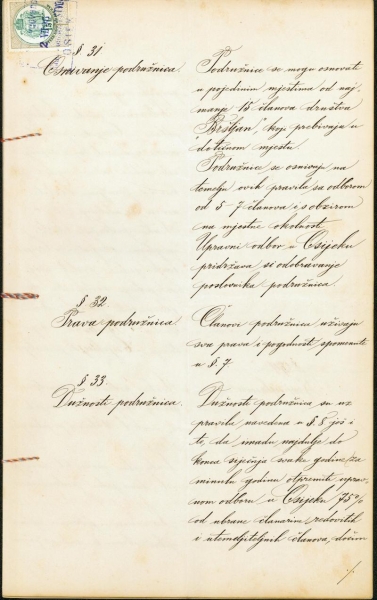 § 31
Osnivanje podružnica.
Podružnice se mogu osnovati
u pojedinim mjestima od naj
manje 15 članova društva
"Bršljan", koji prebivaju u
dotičnom mjestu.
Podružnice se osnivaju na
temelju ovih pravila sa odborom
od 5-7 članova i s obzirom
na mjestne okolnosti.
Upravni odbor u Osijeku
pridržava si odobravanje
poslovnika podružnica.
§ 32.
Prava podružnica.
Članovi podružnica uživaju
sva prava i pogodnosti spomenute
u § 7
§ 33.
Dužnosti podružnica.
Dužnosti podružnica su uz
pravila navedena u § 8 još i
te, da imadu najdulje do
konca siječnja svake godine za
minulu godinu otpremiti uprav-
nom odboru u Osijeku 75%
od ubrane članarine, redovitih
i utemeljiteljnih članova, dočim
·/.